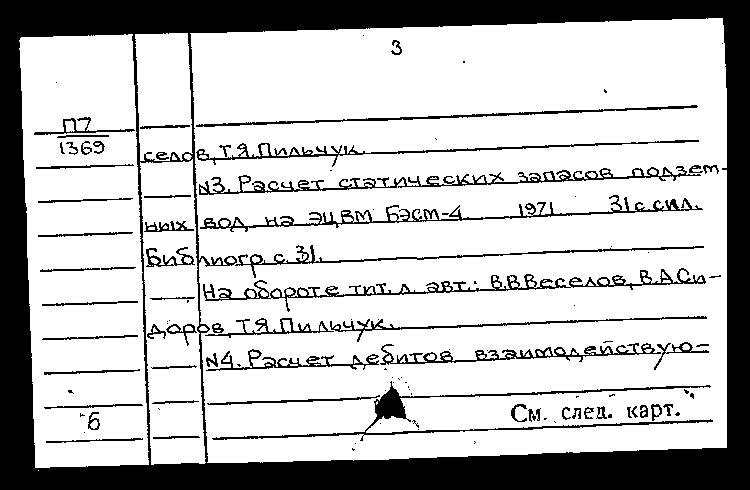 3
П7
1369
селов, Т.Я.Пильчук.
N3. Расчет статических запасов подзем-
ных вод на ЭЦВМ БЭСМ-4 1971 31 с сил.
Библиогр с. 31.
На обороте тит. л. авт.: В.В.Веселов, В.А.Си-
доров, Т.Я.Пильчук.
N4. Расчет дебитов взаимодействую-
б
См. след. карт.